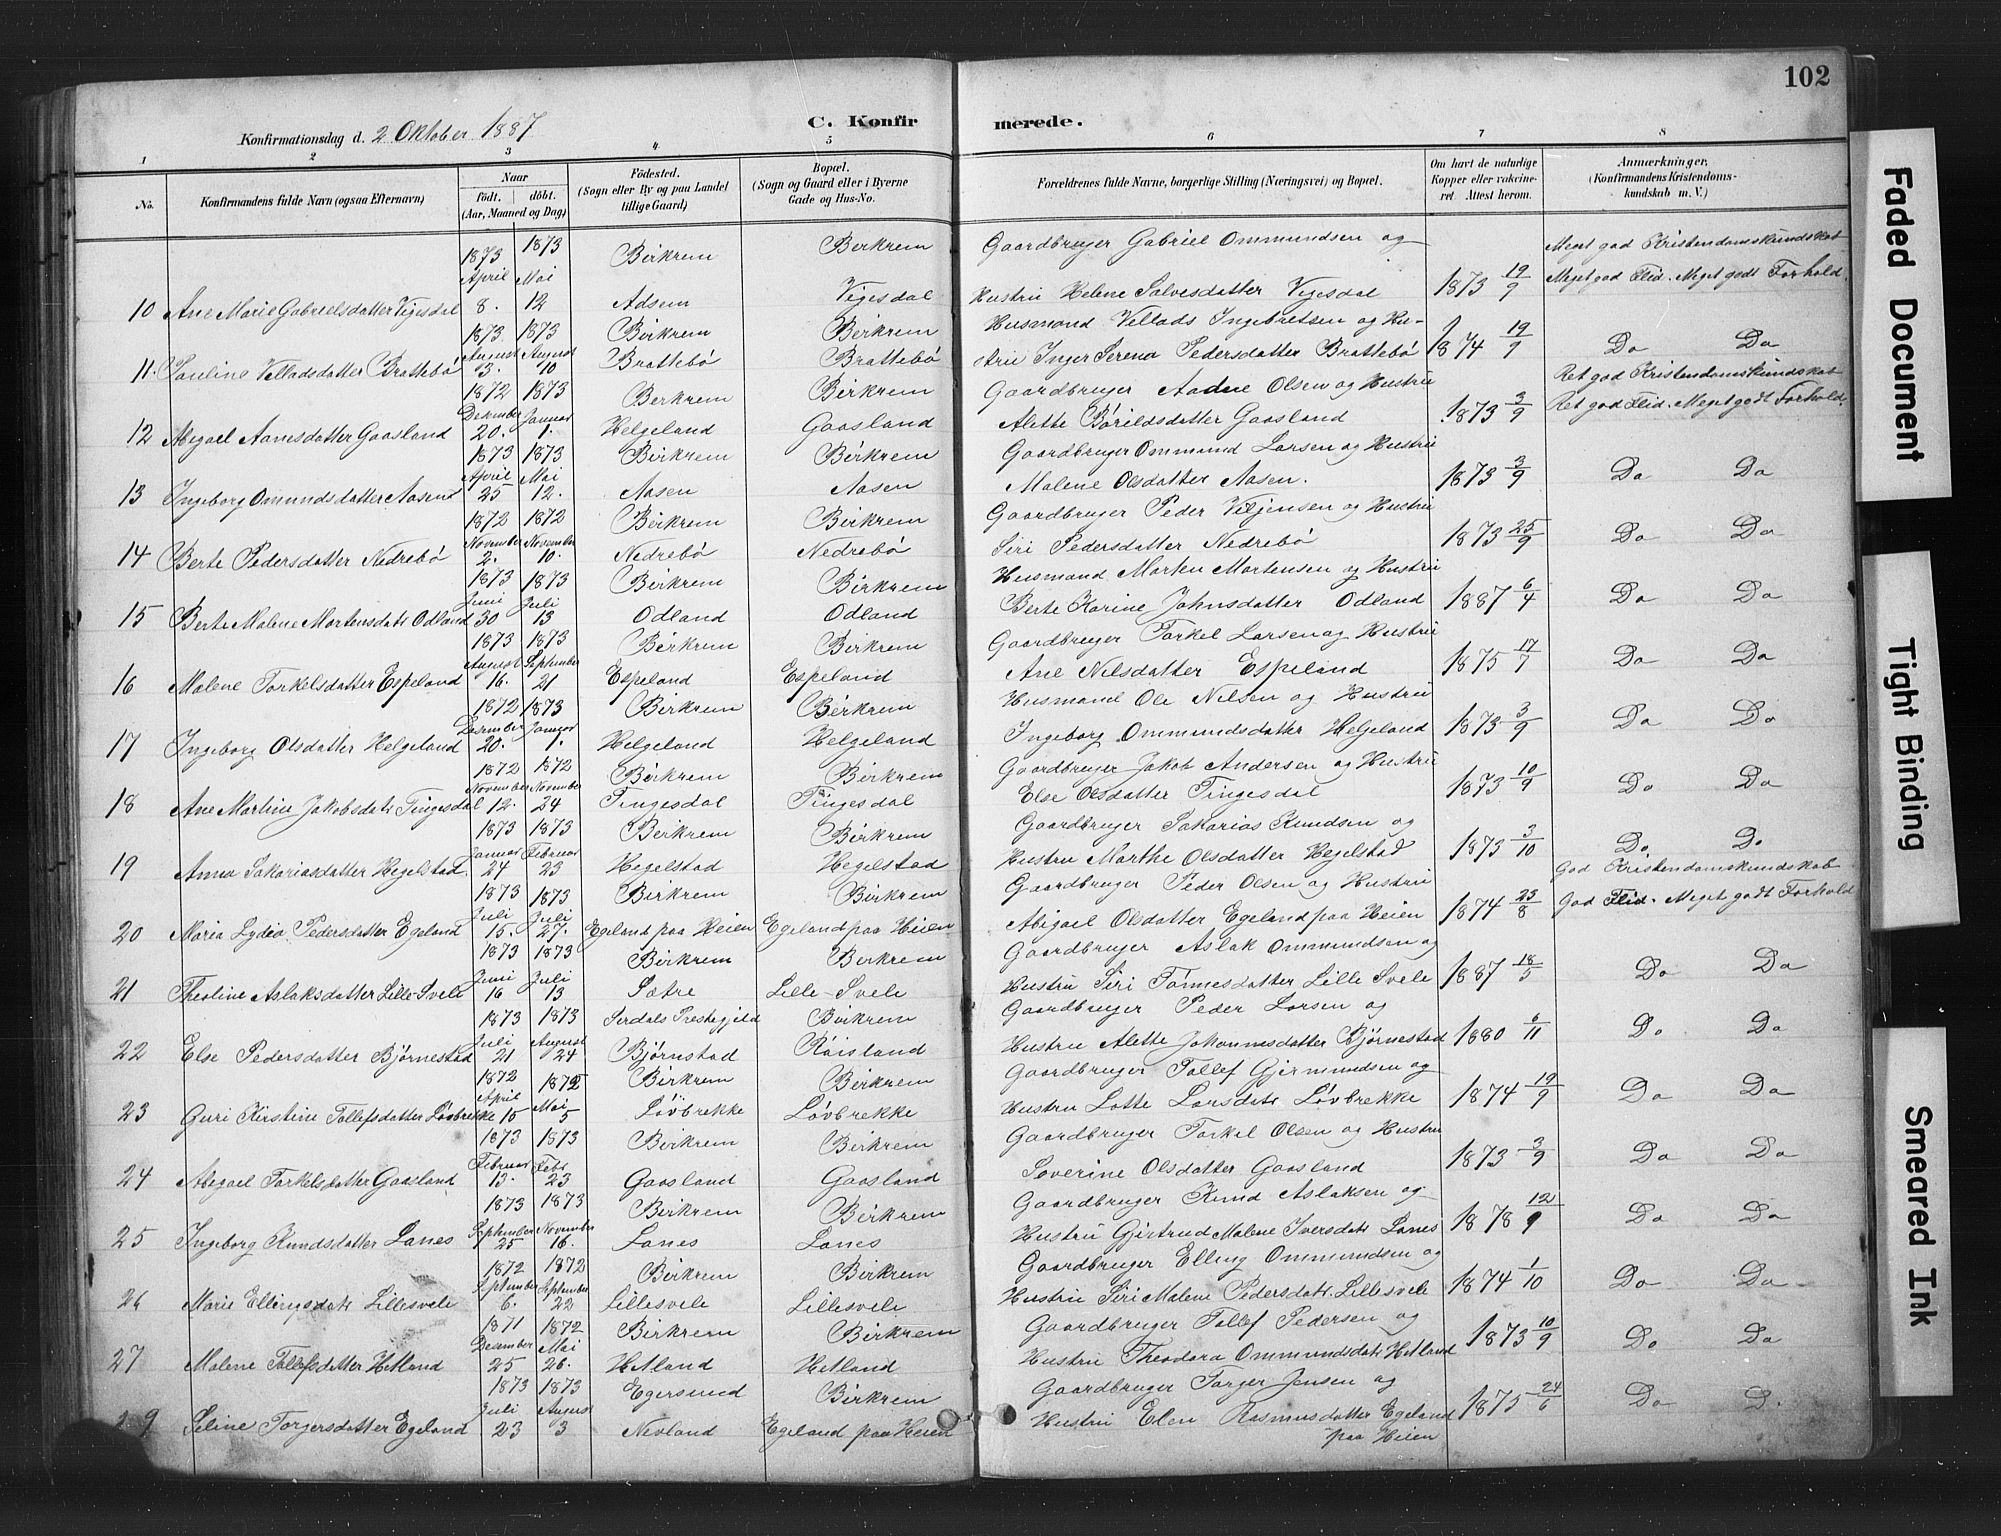 102
Konfirmationsdag d. 2 Oktober 1887
C. Konfirmerede.
1 2 3 4 5 6 7 8
No. Konfirmandens fulde Navn (ogsaa Efternavn) Naar födt. döbt. (Aar, Maaned og Dag) Födested. (Sogn eller By og paa Landet tillige Gaard) Bopæl. (Sogn og Gaard eller i Byerne Gade og Hus-No. Forældrenes fulde Navne, borgerlige Stilling (Næringsvei) og Bopæl. Om havt de naturlige Kopper eller vakcineret. Attest herom. Anmærkninger. (Konfirmandens Kristendomskundskab m. V.)
1873 1873 Birkrem Birkrem Gaardbruger Gabriel Ommundsen og Meget god Kristendomskundskab
10 Ane Marie Gabrielsdatter Vigesdal April 8. Mai 12 Adsem Vigesdal Hustru Helene Salvesdatter Vigesdal 1873 19/9 Meget god Flid. Meget godt Forhold.
1873 1873 Birkrem Birkrem Husmand Vellads Ingebretsen og Hu-
11. Pauline Velladsdatter Brattebö August 3. August 10 Brattebö Brattebö stru Inger Serena Pedersdatter Brattebö 1874 19/9 Do Do
1872 1873 Berkrem Birkrem Gaardbruger Aadne Olsen og Hustru Ret god Kristendomskundskab
12 Abigael Aanesdatter Gaasland Dezember 20. Januar 1. Helgeland Gaasland Alette Bórildsdatter Gaasland 1873 3/9 Ret god Flid. Meget godt Forhold.
1873 1873 Birkrem Birkrem Gaardbruger Ommund Larsen og Hustru
13 Ingeborg Omundsdatter Aasen April 25 Mai 12. Aasen Aasen Malene Olsdatter Aasen. 1873 3/9 Do Do
1872 1872 Birkrem Birkrem Gaardbruger Peder Veljensen og Hustru
14 Berte Pedersdatter Nedrebö November 2. November 10. Nedrebö Nedrebö Siri Pedersdatter Nedrebö 1873 25/9 Do Do
1873 1873 Birkrem Birkrem Husmand Morten Mortensen og Hustru
15 Berte Malene Mortensdatr Odland Juni 30 Juli 13 Odland Odland Berte Karine Johnsdatter Odland 1887 6/4 Do Do
1873 1873 Birkrem Birkrem Gaardbruger Torkel Larsen og Hustru
16 Malene Torkelsdatter Espeland August 16. September 21 Espeland Espeland Ane Nilsdatter Espeland 1875 17/7 Do Do
1872 1873 Birkrem Birkrem Husmand Ole Nilsen og Hustru
17 Ingeborg Olsdatter Helgeland Desember 20. Januar 1. Helgeland Helgeland Ingeborg Ommundsdatter Helgeland 1873 3/9 Do Do
1872 1872 Birkrem Birkrem Gaardbruger Jakob Andersen og Hustru
18 Ane Martine Jakobsdatr Tingesdal November 12. November 24 Tingesdal Tingesdal Else Olsdatter Tingesdal 1873 10/9 Do Do
1873 1873 Birkrem Birkrem Gaardbruger Sakarias Knudsen og
19 Anna Sakariasdatter Hegelstad. Januar 24 Februar 23 Hegelstad Hegelstad Hustru Marthe Olsdatter Hegelstad 1873 3/10 Do Do
1873 1873 Birkrem Birkrem Gaardbruger Peder Olsen og Hustru God Kristendomskundskab
20 Maria Lydia Pedersdatter Egeland Juli 15. Juli 27. Egeland paa Heien Egeland paa Heien Abigael Olsdatter Egeland paa Heien 1874 23/8 God Flid. Meget godt Forhold
1873 1873 Birkrem Birkrem Gaardbruger Aslak Ommundsen og
21 Theoline Aslaksdatter Lille-Svele Juni 16 Juli 13 Sætre Lille-Svele Hustru Siri Tönnesdatter Lille Svele 1887 18/5 Do Do
1873 1873 Serdals Prestegjeld Birkrem Gaardbruger Peder Larsen og
22 Else Pedersdatter Bjørnestad Juli 21 August 24 Bjørnstad Röisland Hustru Alette Johannesdatter Bjørnestad 1880 6/11 Do Do
1872 1872 Birkrem Birkrem Gaardbruger Tollef Girmundsen og
23 Guri Kirstine Tollefsdatter Løvbrekke April 15 Mai 5 Løvbrekke Løvbrekke Hustru Lotte Larsdatr Løvbrekke 1874 19/9 Do Do
1873 1873 Birkrem Birkrem Gaardbruger Torkel Olsen og Hustru
24 Abigael Torkelsdatter Gaasland Februar 13. Febr 23 Gaasland Gaasland Soverine Olsdatter Gaasland 1873 3/9 Do Do
1873 1873 Birkrem Birkrem Gaardbruger Knud Aslaksen og
25 Ingeborg Knudsdatter Lanes September 25 November 16. Lanes Lanes Hustru Gjertrud Malene Iversdatr Lanes 1878 12/9 Do Do
1872 1872 Birkrem Birkrem Gaardbruger Elling Ommundsen og
26 Marie Ellingsdatr Lillesvele September 6. September 22 Lillesvele Lillesvele Hustru Siri Malene Pedersdatr. Lillesvele 1874 1/10 Do Do
1871 1872 Birkrem Birkrem Gaardbruger Tollef Pedersen og
27 Malene Tollefsdatter Hetland Desember 25 Mai 26. Hetland Hetland Hustru Theodora Ommundsdatr Hetland 1873 10/9 Do Do
1873 1873 Egersund Birkrem Gaardbruger Torger Jensen og
29 Seline Torgersdatter Egeland Juli 23 August 3 Nevland Egeland paa Heien Hustru Elen Rasmusdatter Egeland paa Heien 1875 24/6 Do D.
Faded Document
Tight Binding
Smeared Ink